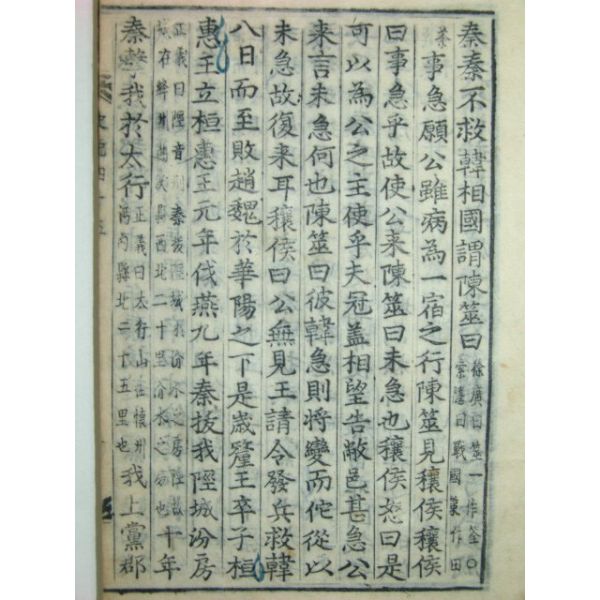 秦秦不救韓相國謂陳筮曰徐廣曰筮一作筌○索隱曰戰國策作田
苓事急願公雖病為一宿之行陳筮見穰侯穰侯
曰事急乎故使公来陳筮曰未急也穰侯怒曰是
可以為公之主使乎夫冠盖相望告敝邑甚急公
来言未急何也陳筮曰彼韓急則将變而佗從以
未急故復来耳穰侯曰公無見王請令發兵救韓
八日而至敗趙魏於華陽之下是歳釐王卒子桓
惠王立桓惠王元年伐燕九年秦拔我陘城汾房
正義曰陘音刑秦拔陘城於汾水之房陘故城在絳州曲沃縣西北二十里汾水之旁也十年
秦擊我於太行正義曰太行山在懷州河內縣北二十五里也我上黨郡
史記四十五